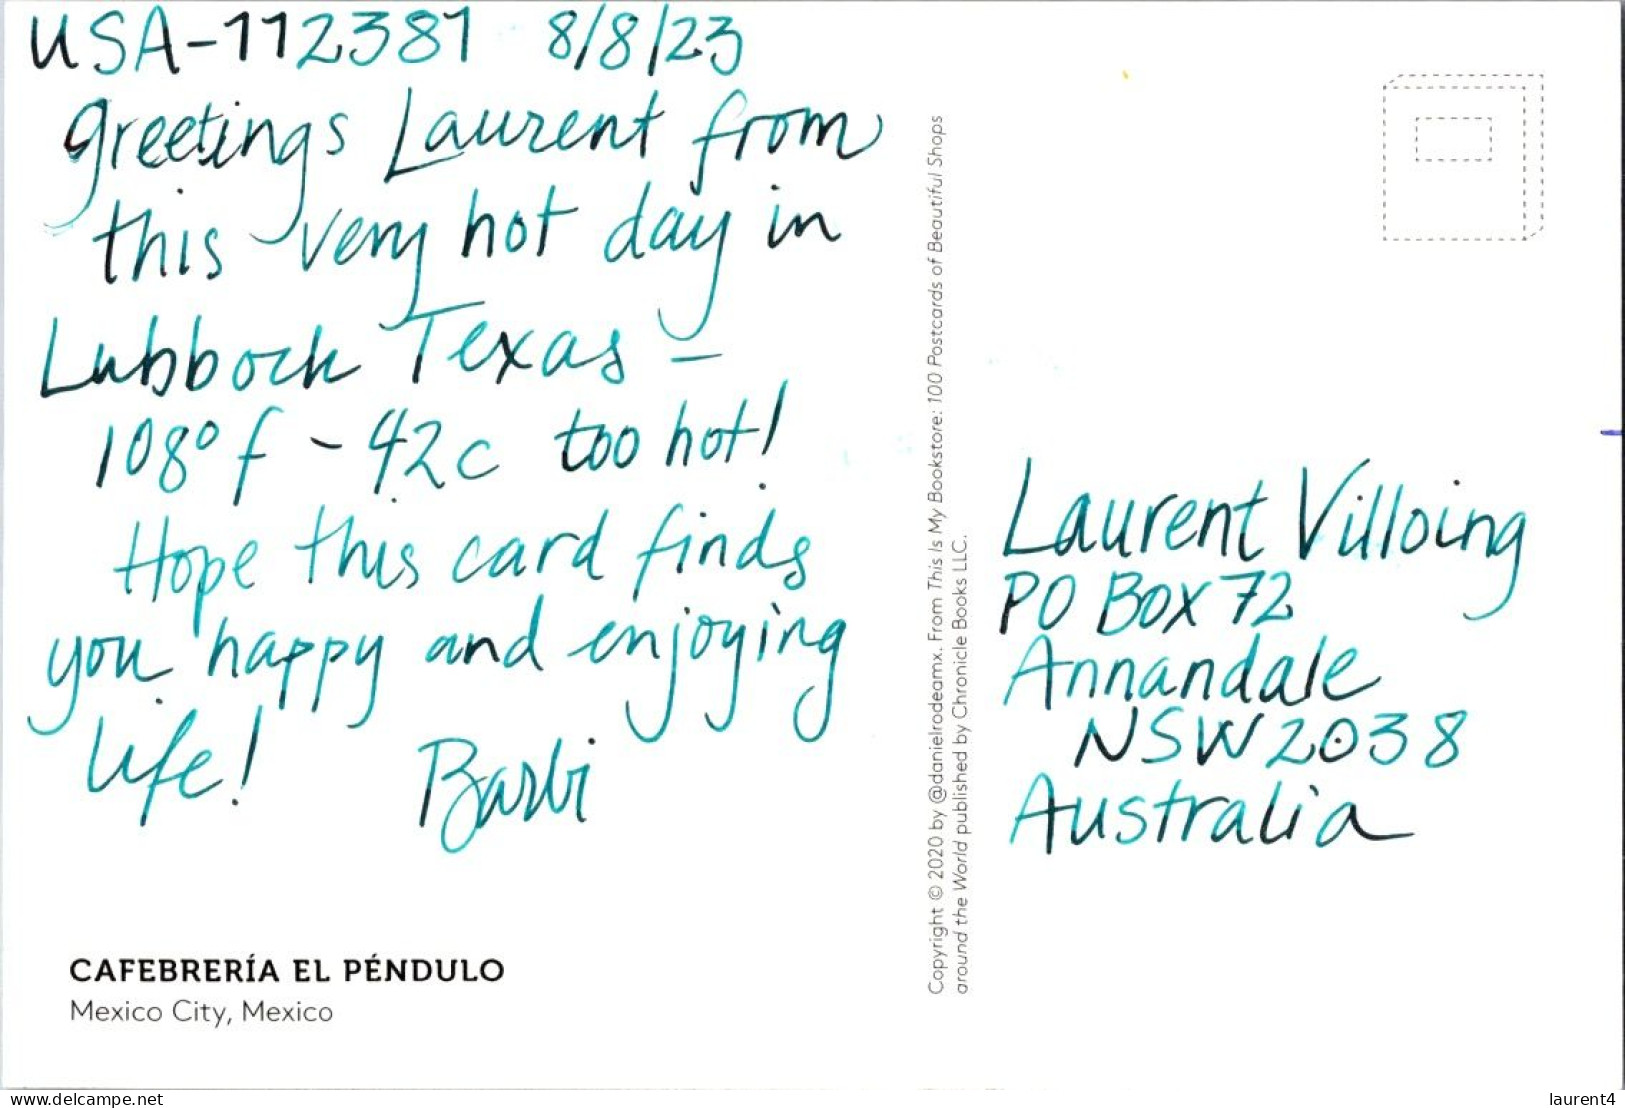 USA-112381 8/8/23
Greetings Laurent from
this very hot day in
Lubbock Texas –
108° f - 42c too hot!
Hope this card finds
you happy and enjoying
life! Barbi
CAFEBRERÍA EL PÉNDULO
Mexico City, Mexico
Copyright © 2020 by @danielrodeamx. From This Is My Bookstore: 100 Postcards of Beautiful Shops
around the World published by Chronicle Books LLC.
Laurent Villoing
PO Box 72
Annandale
NSW 2038
Australia
www.delcampe.net
laurent4